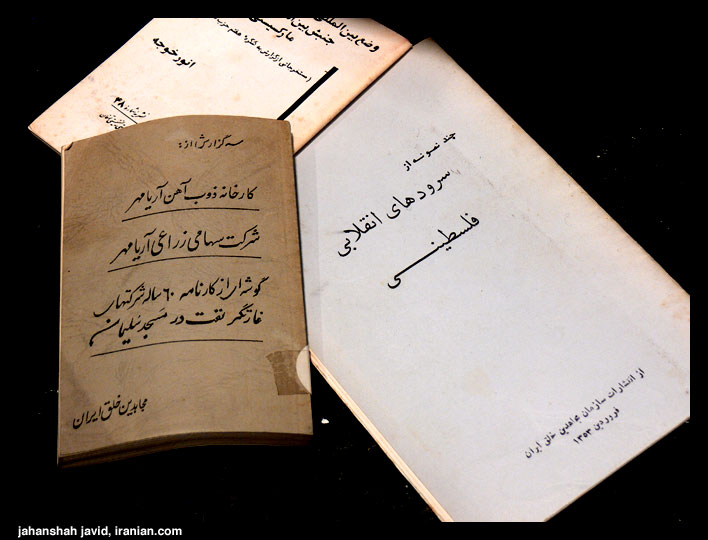 وضع بین المللی
جنبش بین
مارکسیس
انور خوجه
نشریه شماره ۴۸
سه گزارش از:
کارخانه ذوب آهن آریامهر
شرکت سهامی زراعی آریامهر
گوشه‌ای از کارنامه ۶۰ ساله شرکتهای
غارتگر نفت در مسجد سلیمان
مجاهدین خلق ایران
چند نمونه از
سرودهای انقلابی
فلسطینی
از انتشارات سازمان مجاهدین خلق ایران
فروردین ۱۳۵۳
jahanshah javid, iranian.com